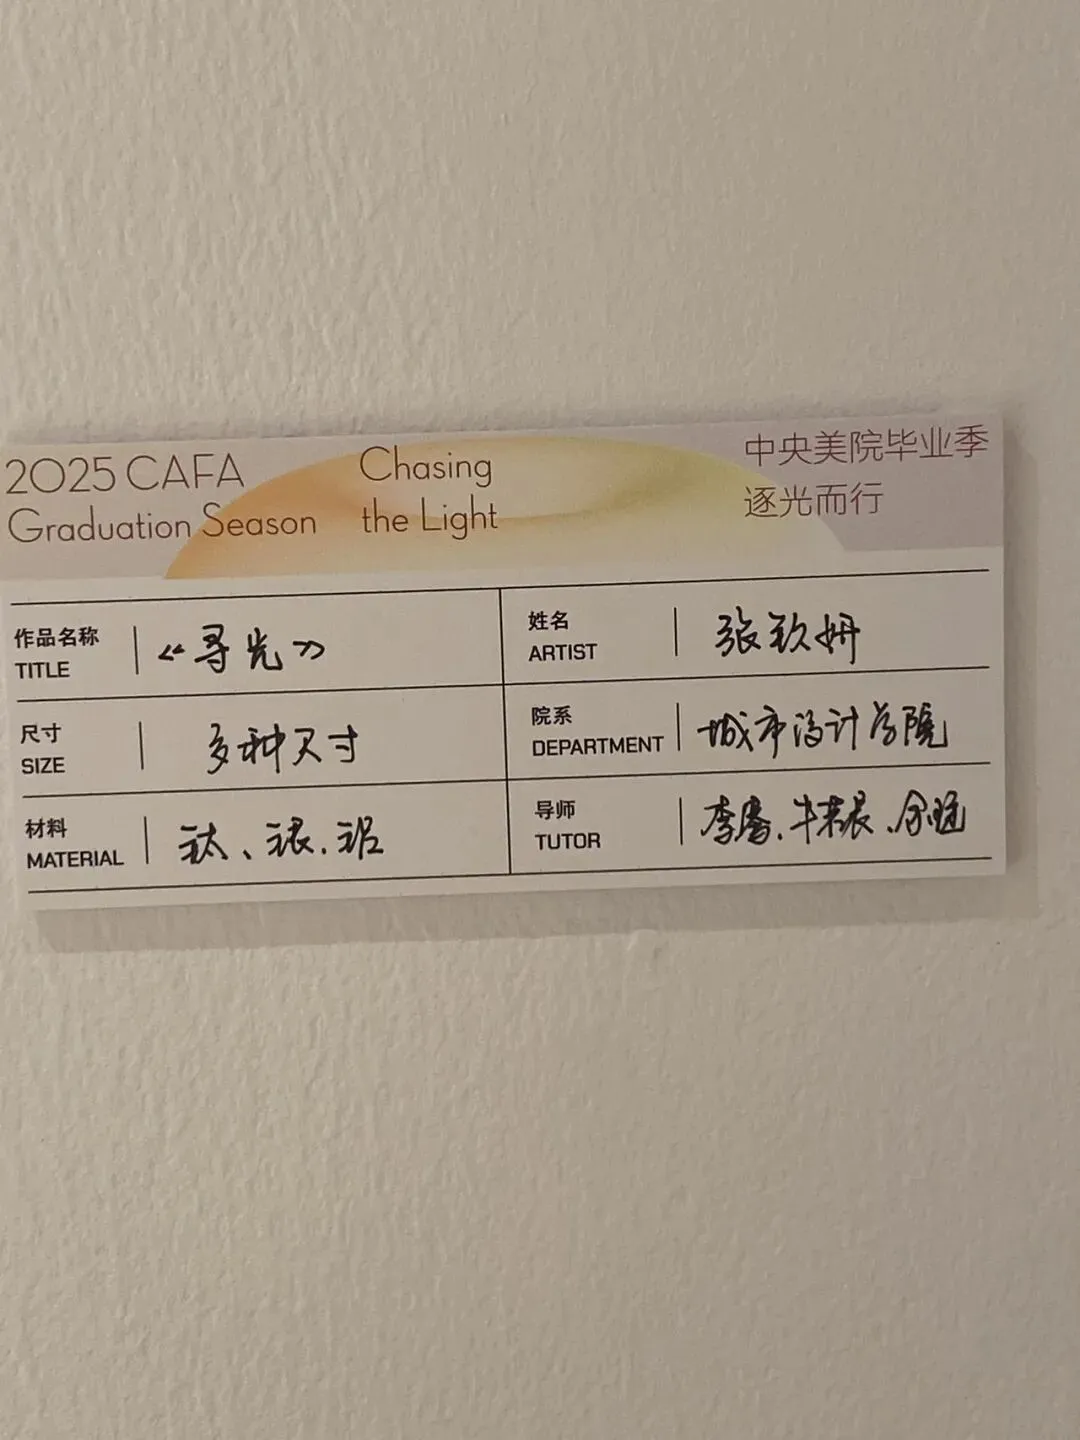 2025 CAFA
Graduation Season
Chasing
the Light
中央美院毕业季
逐光而行
作品名称
TITLE
《寻光》
姓名
ARTIST
张钦妍
尺寸
SIZE
多种尺寸
院系
DEPARTMENT
城市设计学院
材料
MATERIAL
钛、银、铝
导师
TUTOR
李、牛、